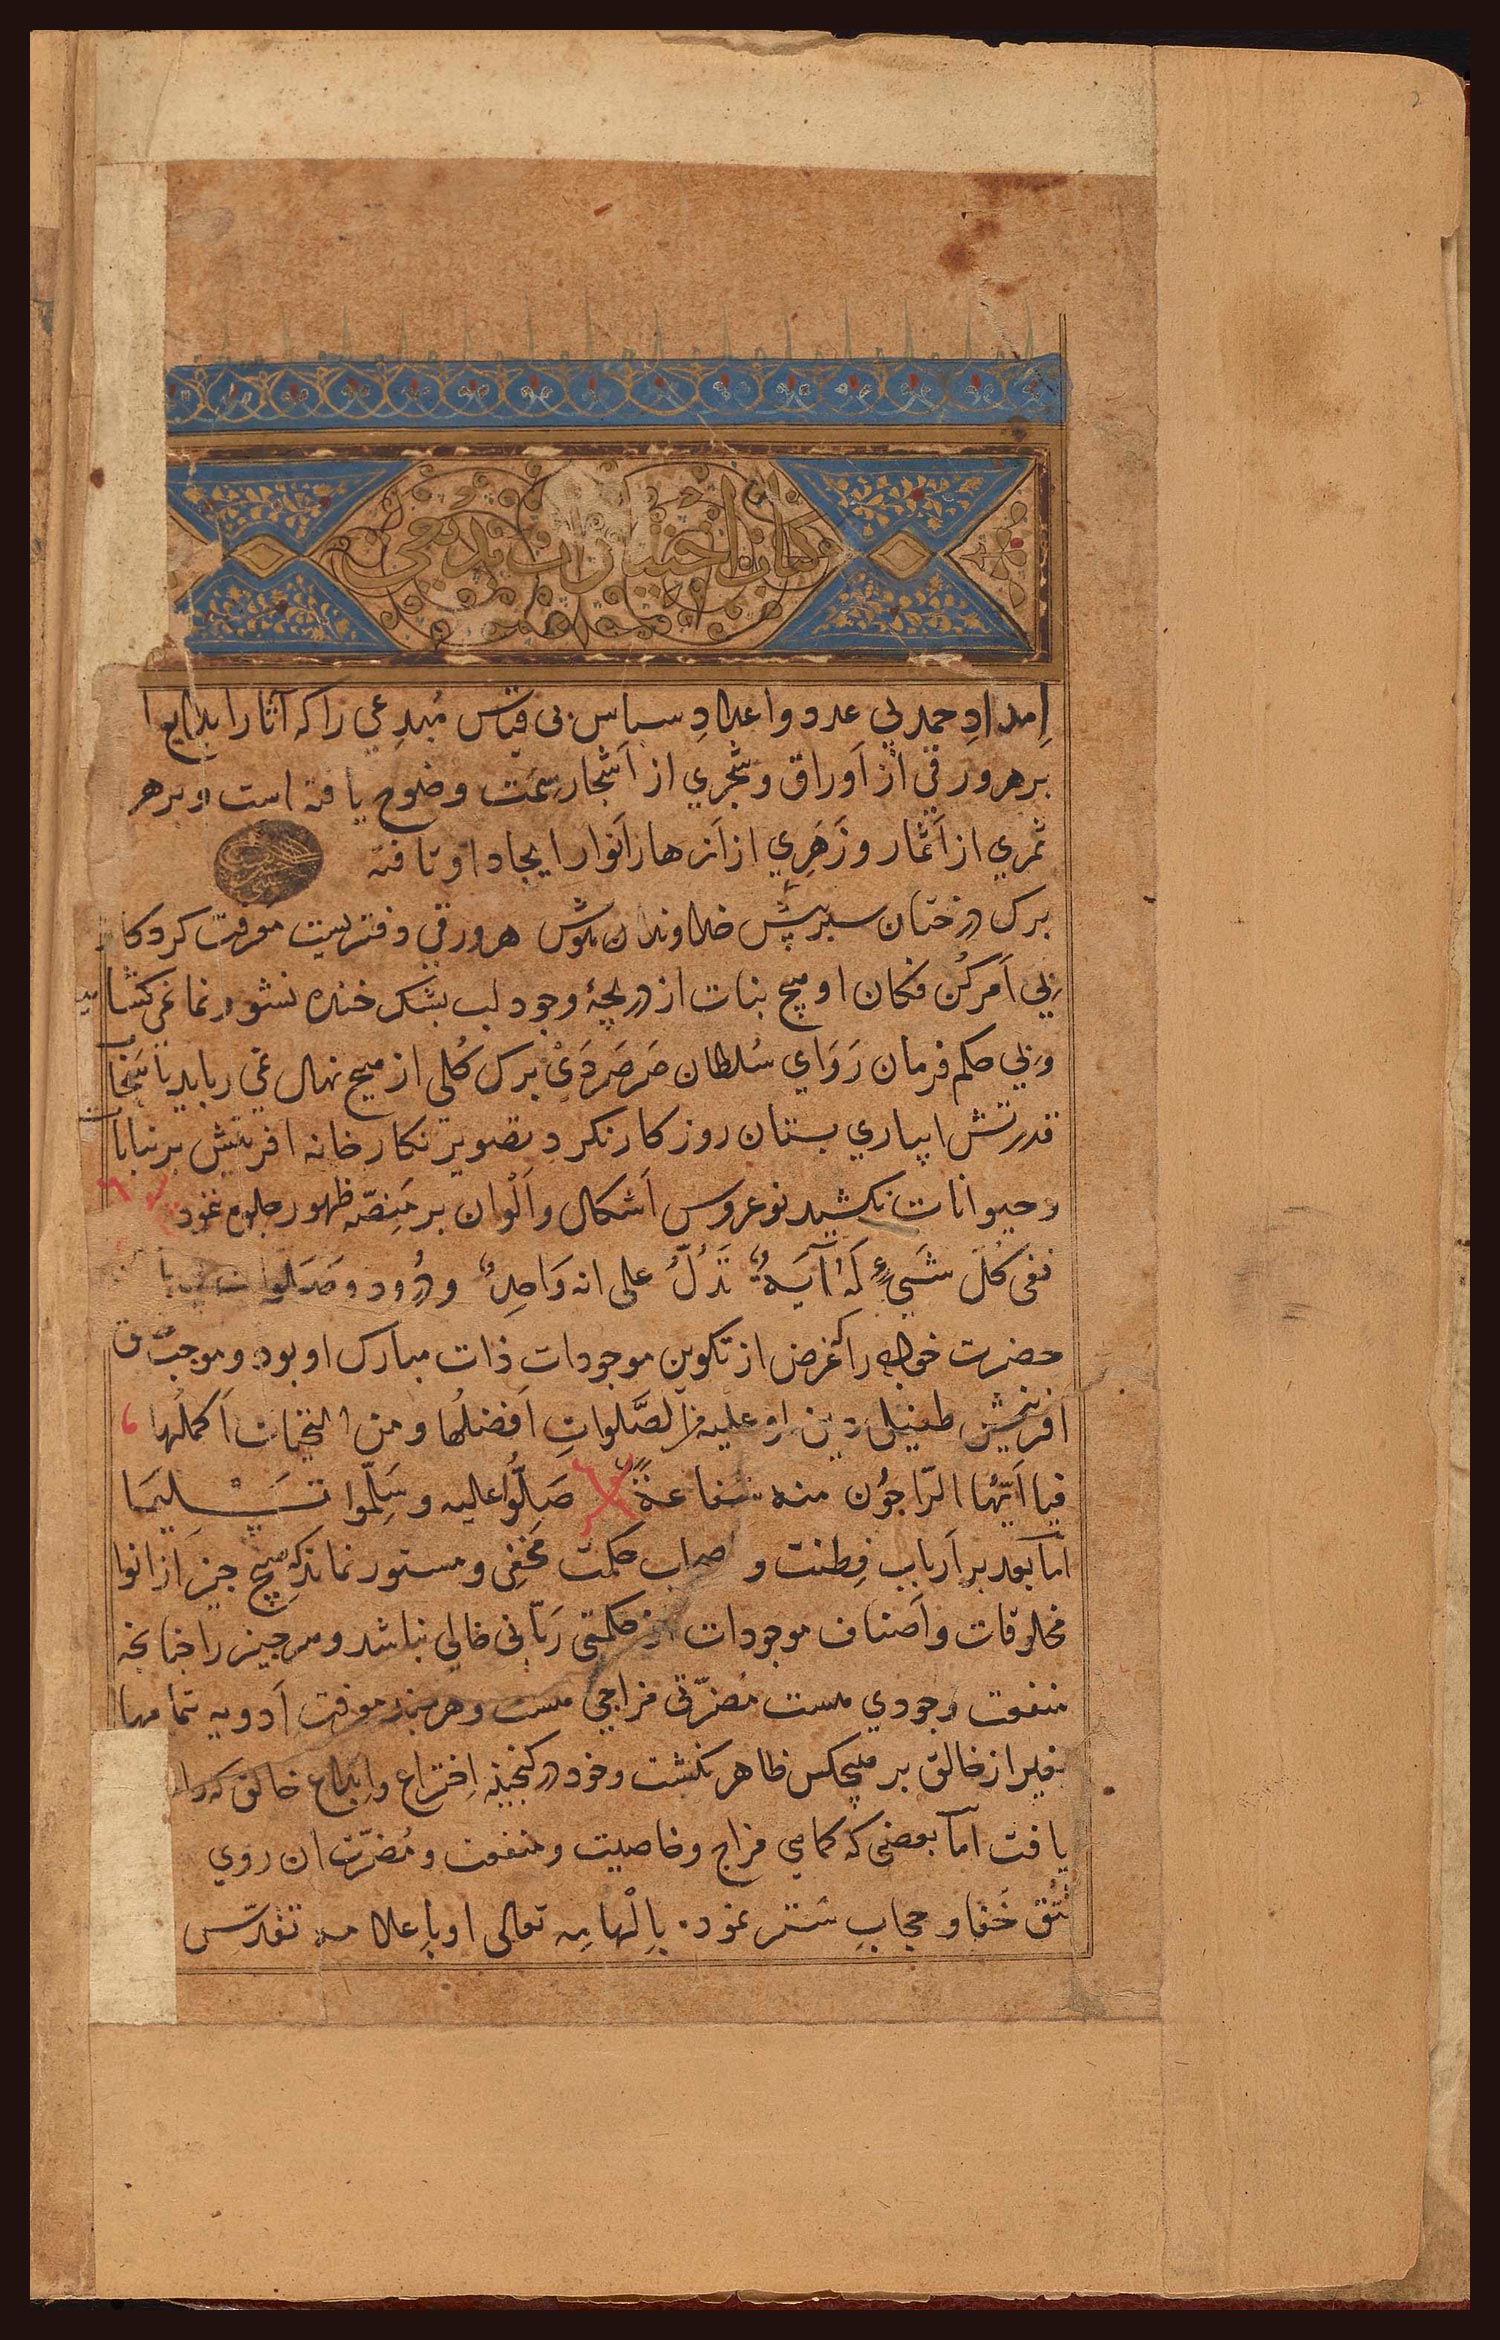 کتاب اختیارات بدیعی
اِمدادِ حمد بی عدد و اعدادِ سپاس بی قیاس مُبدِعی را که آثار ابداع
بر هر ورقی از اَوراق و شجری از اَشجار سِمَت وضوح یافته است و بر هر
ثمری از اَثمار و زَهَرِی از اَزهار اَنوار ایجاد او تافته
برک درختان سبز پیش خداوندان هوش هر ورقی دفتریست معرفت کردکار
بی اَمر کُن فکان او هیچ نبات از دریچهٔ وجود لب بشکر خنده نشو و نما نمی کشاید
و بی حکم فرمان رَوَای سُلطان صَرصَر دَیْ برک کُلی از هیچ نهال نمی رباید با سَحَاب
قدرتش ابیاری بستان روزکار نکرد و تصویر نکارخانه افرینش بر نباتات
و حیوانات نکشید نوعروس اَشکال و اَلْوان بر مَنِصّه ظهور جلوه ننمود
ففی کُلّ شَیءٍ لَهُ آیَةٌ تَدُلُّ علی انه وَاحِدٌ و دُرُود و صَلوات
حضرت خواجه را که غرض از تکوین موجودات ذات مبارک او بود و موجب
افرینش طفیل دین او علیه من الصَّلَواتِ اَفضلُها و من التحیّات اَکملُها
فیا اَیّها الرّاجُون منه شفاعةً صَلُّوا علیه و سَلِّموا تَسْلیمَا
امّا بعد بر اَرباب فِطنت و اصحاب حکمت مخفی و مستور نماند که هیچ چیز از انواع
مخلوقات و اَصناف موجودات از حکمتی رَبّانی خالی نباشد و هر چیز را چنانچه
منفعت وجودی هست مُضرّتی مزاجی هست و هرچند معرفت اَدویه تمامها
بغیر از خالق بر هیچکس ظاهر نکشت و خود در کنجینه اِختراع و اِبداع خالق که راه
یافت امّا بعضی که کماهی مزاج و خاصیت و منفعت و مُضرّت ان روی
تُتُق خَفا و حجابِ سَتر نمود باِلْهامِه تعالی او باِعلامه تقدّس